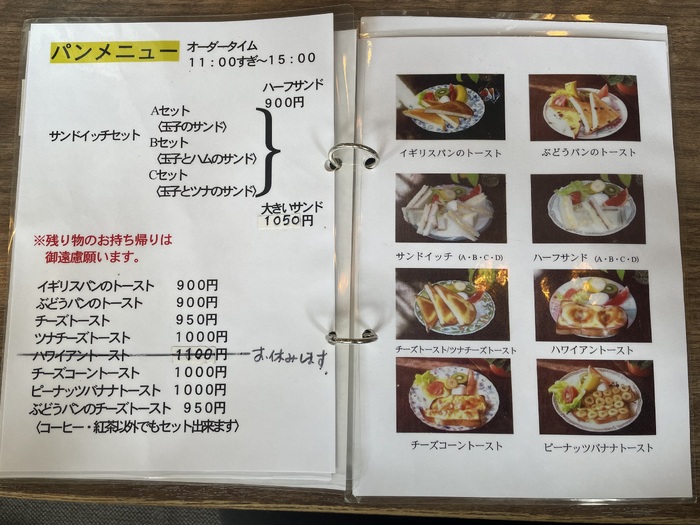 パンメニュー
オーダータイム
11:00すぎ～15:00
ハーフサンド
900円
Aセット
〈玉子のサンド〉
サンドイッチセット
Bセット
〈玉子とハムのサンド〉
Cセット
〈玉子とツナのサンド〉
大きいサンド
1050円
※残り物のお持ち帰りは
御遠慮願います。
イギリスパンのトースト 900円
ぶどうパンのトースト 900円
チーズトースト 950円
ツナチーズトースト 1000円
ハワイアントースト 1100円 お休みします
チーズコーントースト 1000円
ピーナッツバナナトースト 1000円
ぶどうパンのチーズトースト 950円
〈コーヒー・紅茶以外でもセット出来ます〉
イギリスパンのトースト
ぶどうパンのトースト
サンドイッチ (A・B・C・D)
ハーフサンド (A・B・C・D)
チーズトースト/ツナチーズトースト
ハワイアントースト
チーズコーントースト
ピーナッツバナナトースト